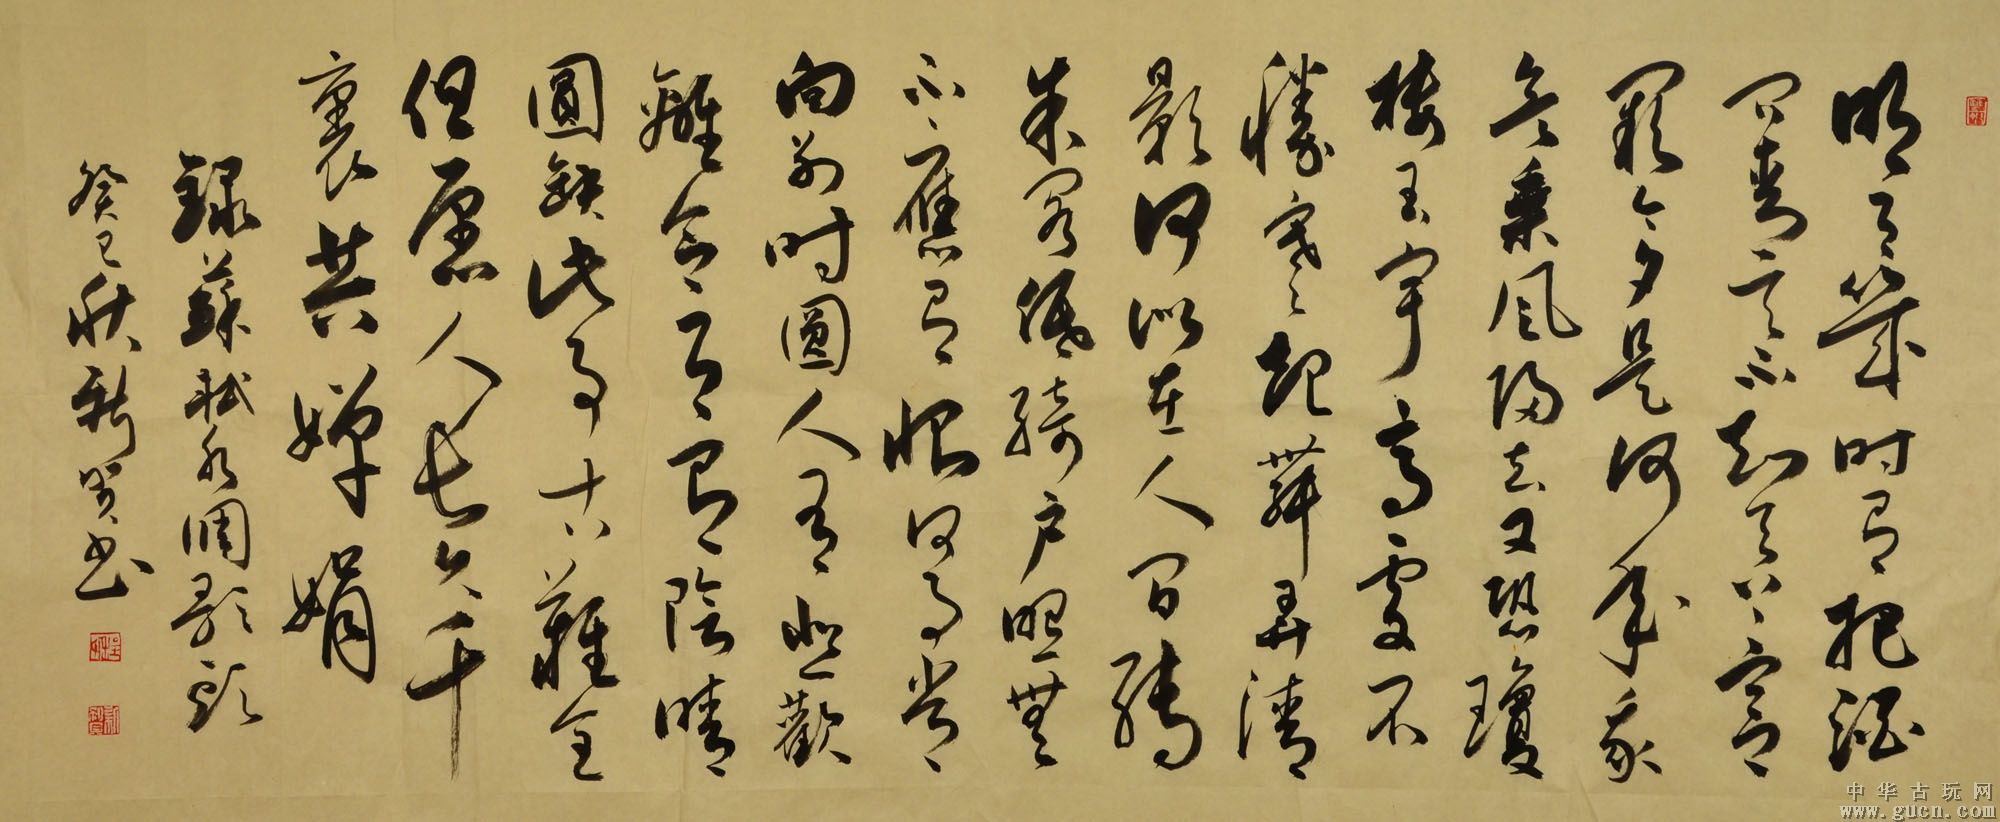 明月幾时有把酒
问青天不知天上宫
阙今夕是何年我
欲乘风归去又恐瓊
楼玉宇高處不
勝寒起舞弄清
影何似在人间转
朱阁低绮户照無
不應有恨何事长
向别时圓人有悲歡
離合月有陰晴
圓缺此事古難全
但愿人长久千
裏共嬋娟
録蘇軾水调歌头
癸巳秋新贤书
中华古玩网
www.gucn.com